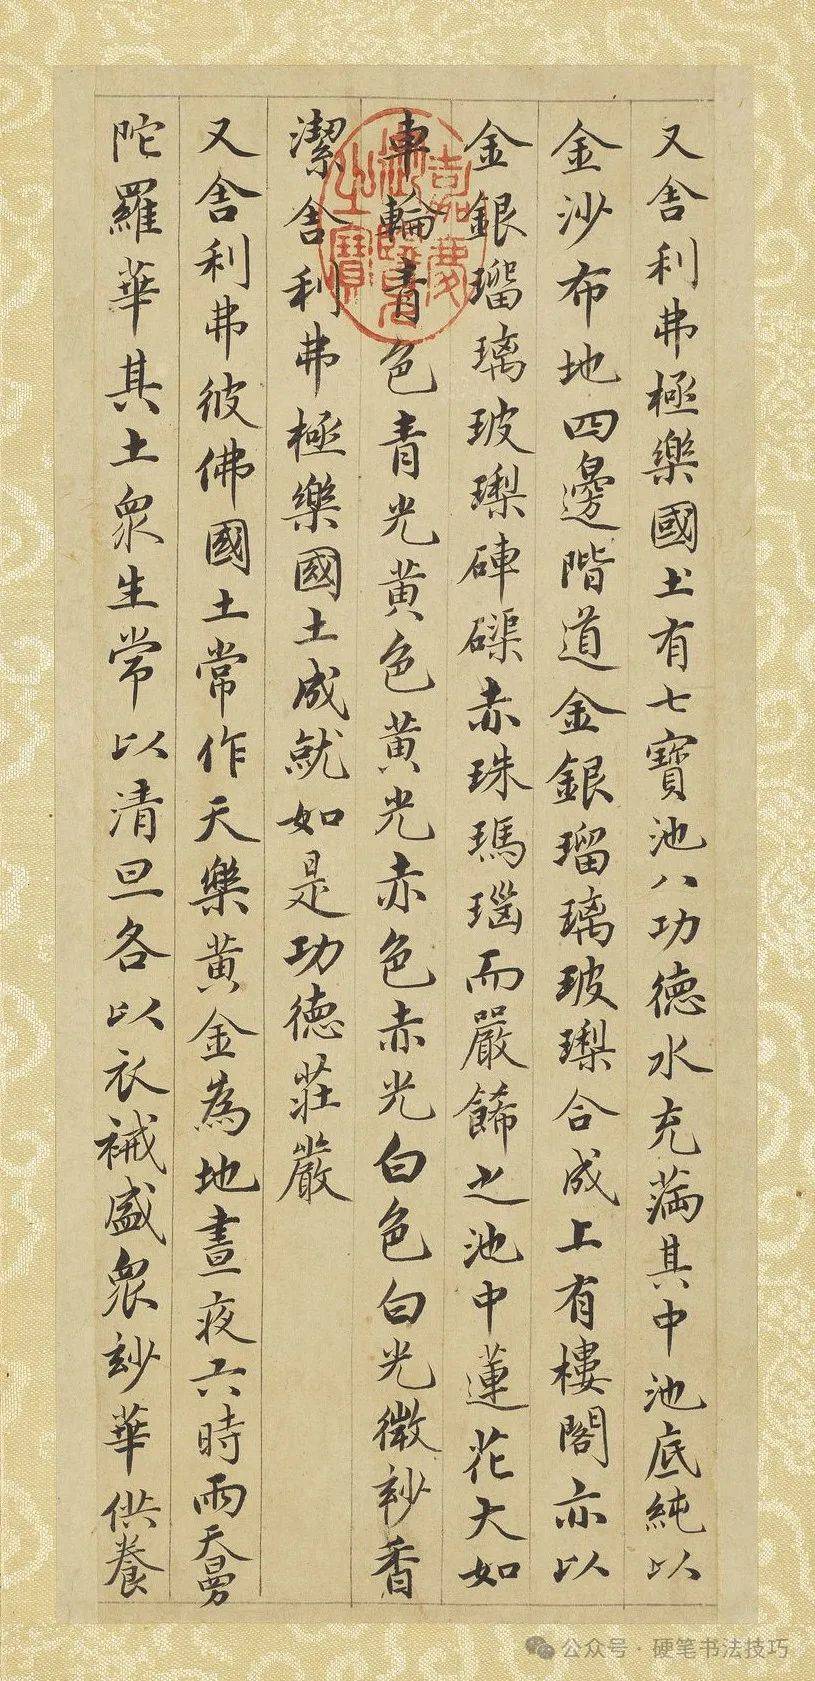 又舍利弗極樂國土有七寶池八功德水充滿其中池底純以
金沙布地四邊階道金銀瑠璃玻瓈合成上有樓閣亦以
金銀瑠璃玻瓈硨磲赤珠瑪瑙而嚴飾之池中蓮花大如
車輪青色青光黃色黃光赤色赤光白色白光微玅香
潔舍利弗極樂國土成就如是功德莊嚴
又舍利弗彼佛國土常作天樂黃金為地晝夜六時雨天曼
陀羅華其土眾生常以清旦各以衣裓盛眾玅華供養
嘉慶御覽之寶
公众号·硬笔书法技巧